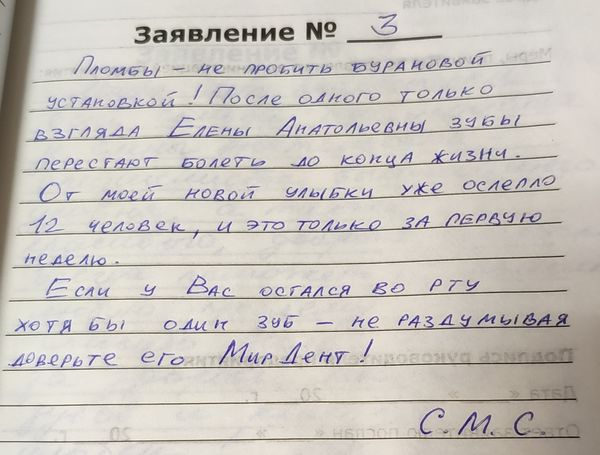 Заявление № 3
Пломбы - не пробить бурановой
установкой! После одного только
взгляда Елены Анатольевны зубы
перестают болеть до конца жизни.
От моей новой улыбки уже ослепло
12 человек, и это только за первую
неделю.
Если у Вас остался во рту
хотя бы один зуб - не раздумывая
доверьте его МирДент!
С.М.С.